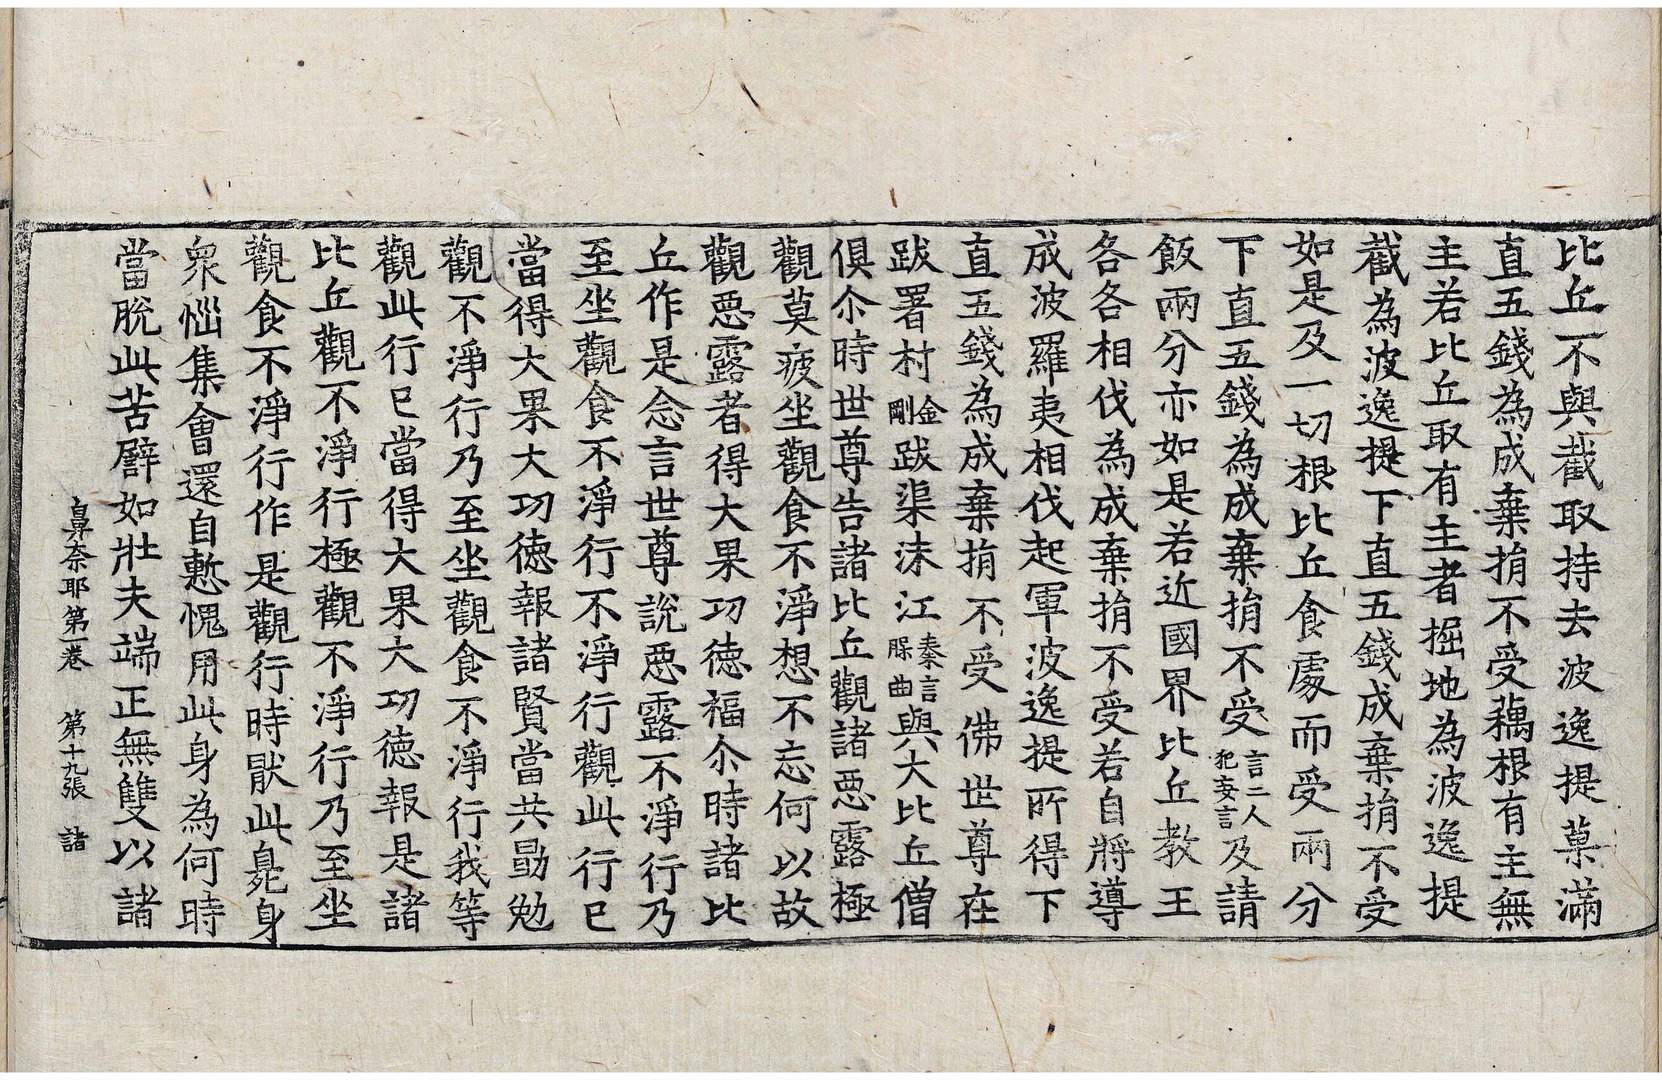 比丘不與截取持去波逸提菓滿
直五錢為成棄捐不受藕根有主無
主若比丘取有主者掘地為波逸提
截為波逸提下直五錢成棄捐不受
如是及一切根比丘食處而受兩分
下直五錢為成棄捐不受言二人犯妄言及請
飯兩分亦如是若近國界比丘教王
各各相伐為成棄捐不受若自將導
成波羅夷相伐起軍波逸提所得下
直五錢為成棄捐不受佛世尊在
跋署村金剛跋渠沫江秦言脲曲與大比丘僧
俱尒時世尊告諸比丘觀諸惡露極
觀莫疲坐觀食不淨想不忘何以故
觀惡露者得大果功德福尒時諸比
丘作是念言世尊說惡露不淨行乃
至坐觀食不淨行不淨行觀此行已
當得大果大功德報諸賢當共勗勉
觀不淨行乃至坐觀食不淨行我等
觀此行已當得大果大功德報是諸
比丘觀不淨行極觀不淨行乃至坐
觀食不淨行作是觀行時猒此臭身
衆惱集會還自慙愧用此身為何時
當脫此苦譬如壯夫端正無雙以諸
鼻奈耶第一卷 第十九張 諸